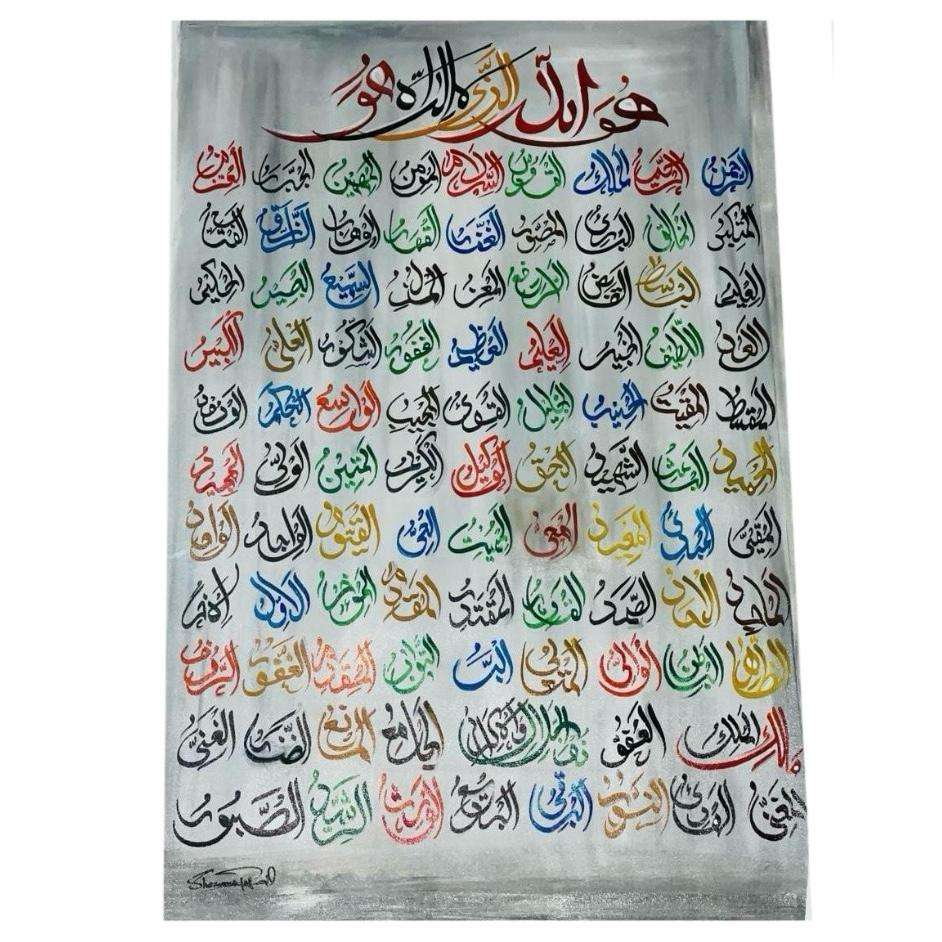 هو الله الذي لا اله هو
الرحمن الرحيم الملك القدوس السلام المؤمن المهيمن الجبار العزيز
المتكبر الخالق البارئ المصور الغفار القهار الوهاب الرزاق الفتاح
العليم الباسط القابض الرافع المعز المذل السميع البصير الحكيم
العدل اللطيف الخبير الحليم العظيم الغفور الشكور العلي الكبير
المقسط المقيت الحسيب الجليل القوى المجيب الواسع الحكيم الودود
الحميد الباعث الشهيد الحق الوكيل الكريم المتين الولي المجيد
المبدئ المعيد المحيي المميت الحي القيوم الواجد
الماجد الصمد القادر المقتدر المقدم المؤخر الاول الاخر
الظاهر الباطن الوالي المتعالي البر التواب الغفور الرؤف
مالك الملك العفو الجامع المانع الضار الغني
النور البديع الوارث الرشيد الصبور